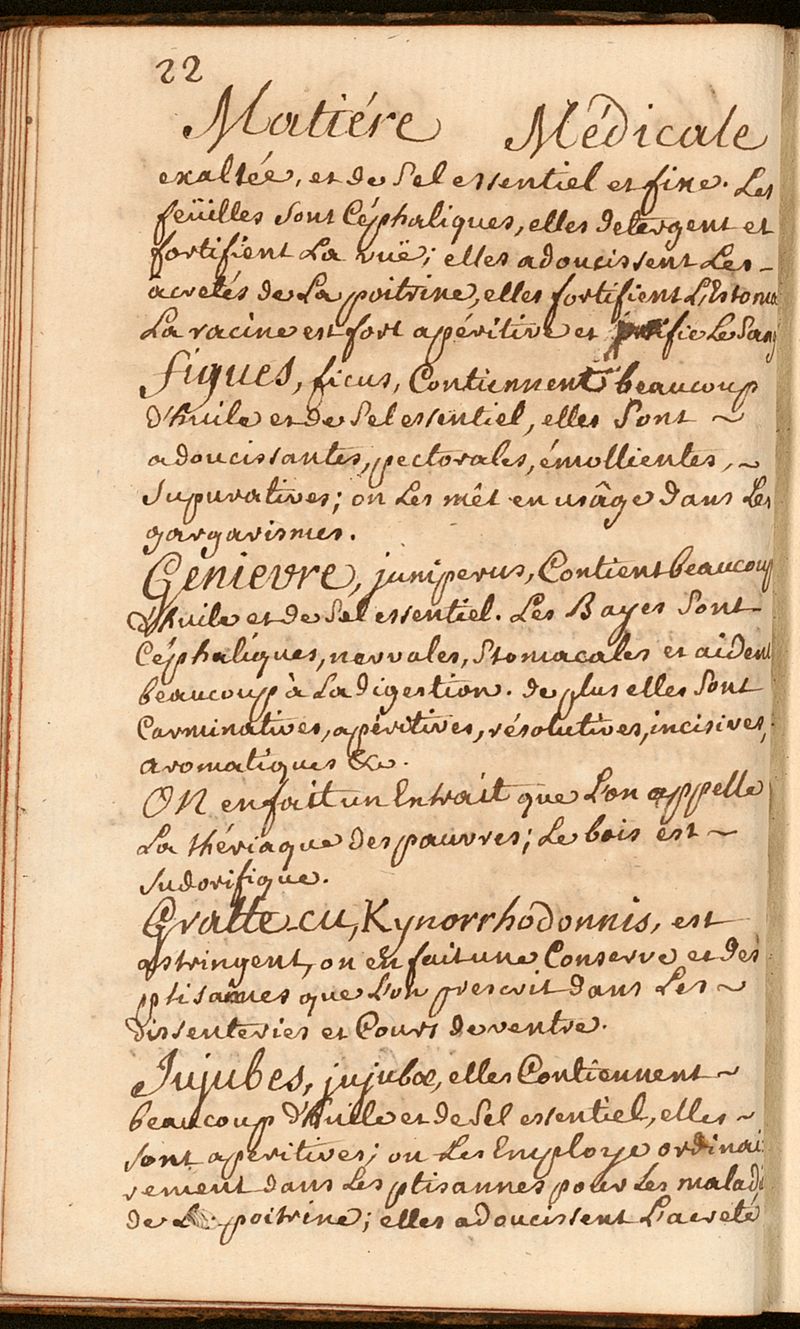 22
Matiére Médicale
exaltée, et de Sel essentiel et fixe. Les
feüilles sont Céphaliques, elles detergent et
fortifient La vuë; elles adoucissent Les-
acretés de La poitrine, elles fortifient L'Estoma
La racine est fort apéritive et purifie Le Sang
Figues, ficus, Contiennent beaucoup
d'huile et de Sel essentiel, elles Sont ~
adoucissantes, pectorales, émollientes, ~
Supuratives; on Les mêt en usâge dans Les
gargarismes.
Genievre, juniperus, Contient beaucoup
d'huile et de Sel essentiel. Les Bayes Sont-
Céphaliques, nervales, Stomacales et aident
beaucoup à La digestion. de plus elles Sont
Carminatives, apéritives, résolutives, incisives,
aromatiques &c.
ON en fait un Extrait que L'on appelle
La thériaque des pauvres; Le bois est ~
Sudorifique.
Gratte-cu, Kynorrhodonnis, est
astringent, on en fait une Conserve et des
ptisannes que L'on prescrit dans Les ~
dissenteries et Cours de ventre.
Jujubes, jujubæ, elles Contiennent ~
beaucoup d'huile et de Sel essentiel, elles ~
sont aperitives; on Les Employe ordinai
rement dans Les ptisannes pour Les maladi
de poitrine; elles adoucissent L'acreté